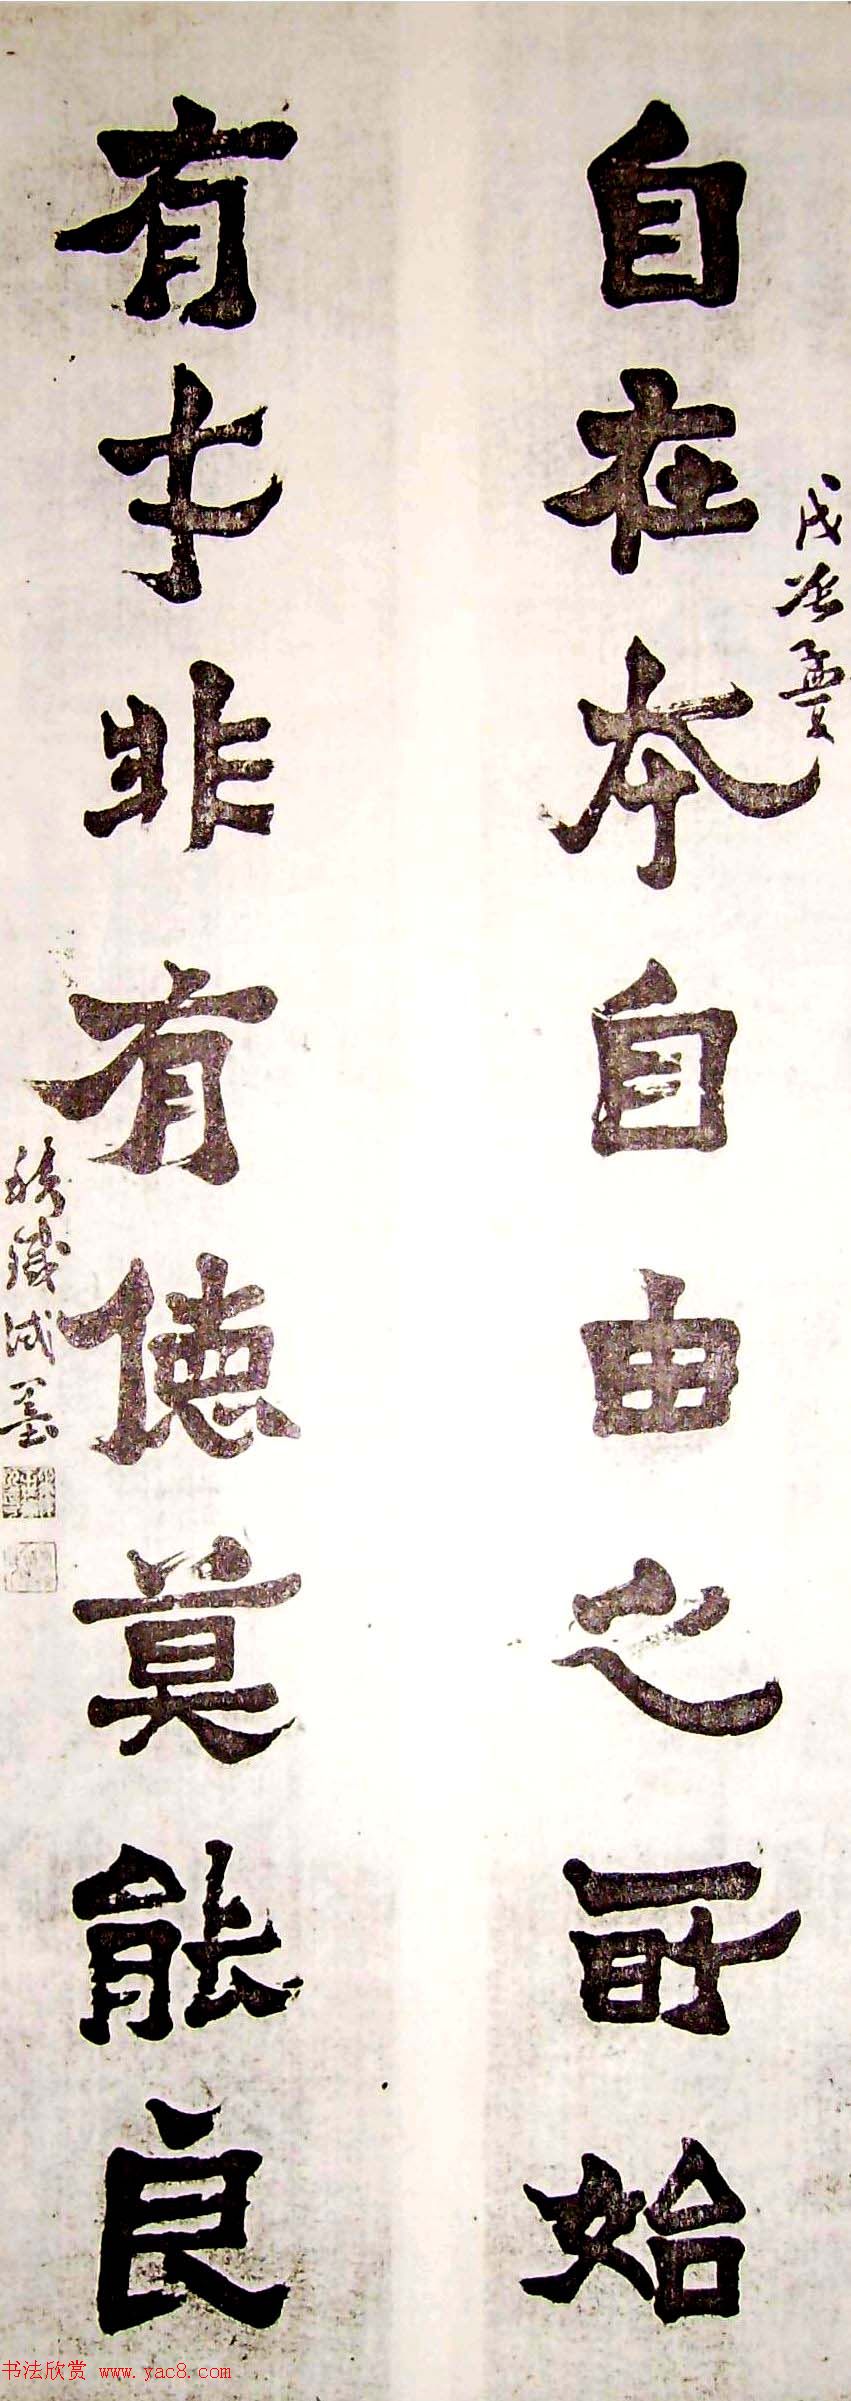 自在本自由之所始
戊
有才非有德莫能良
墨
书法欣赏 www.yac8.com